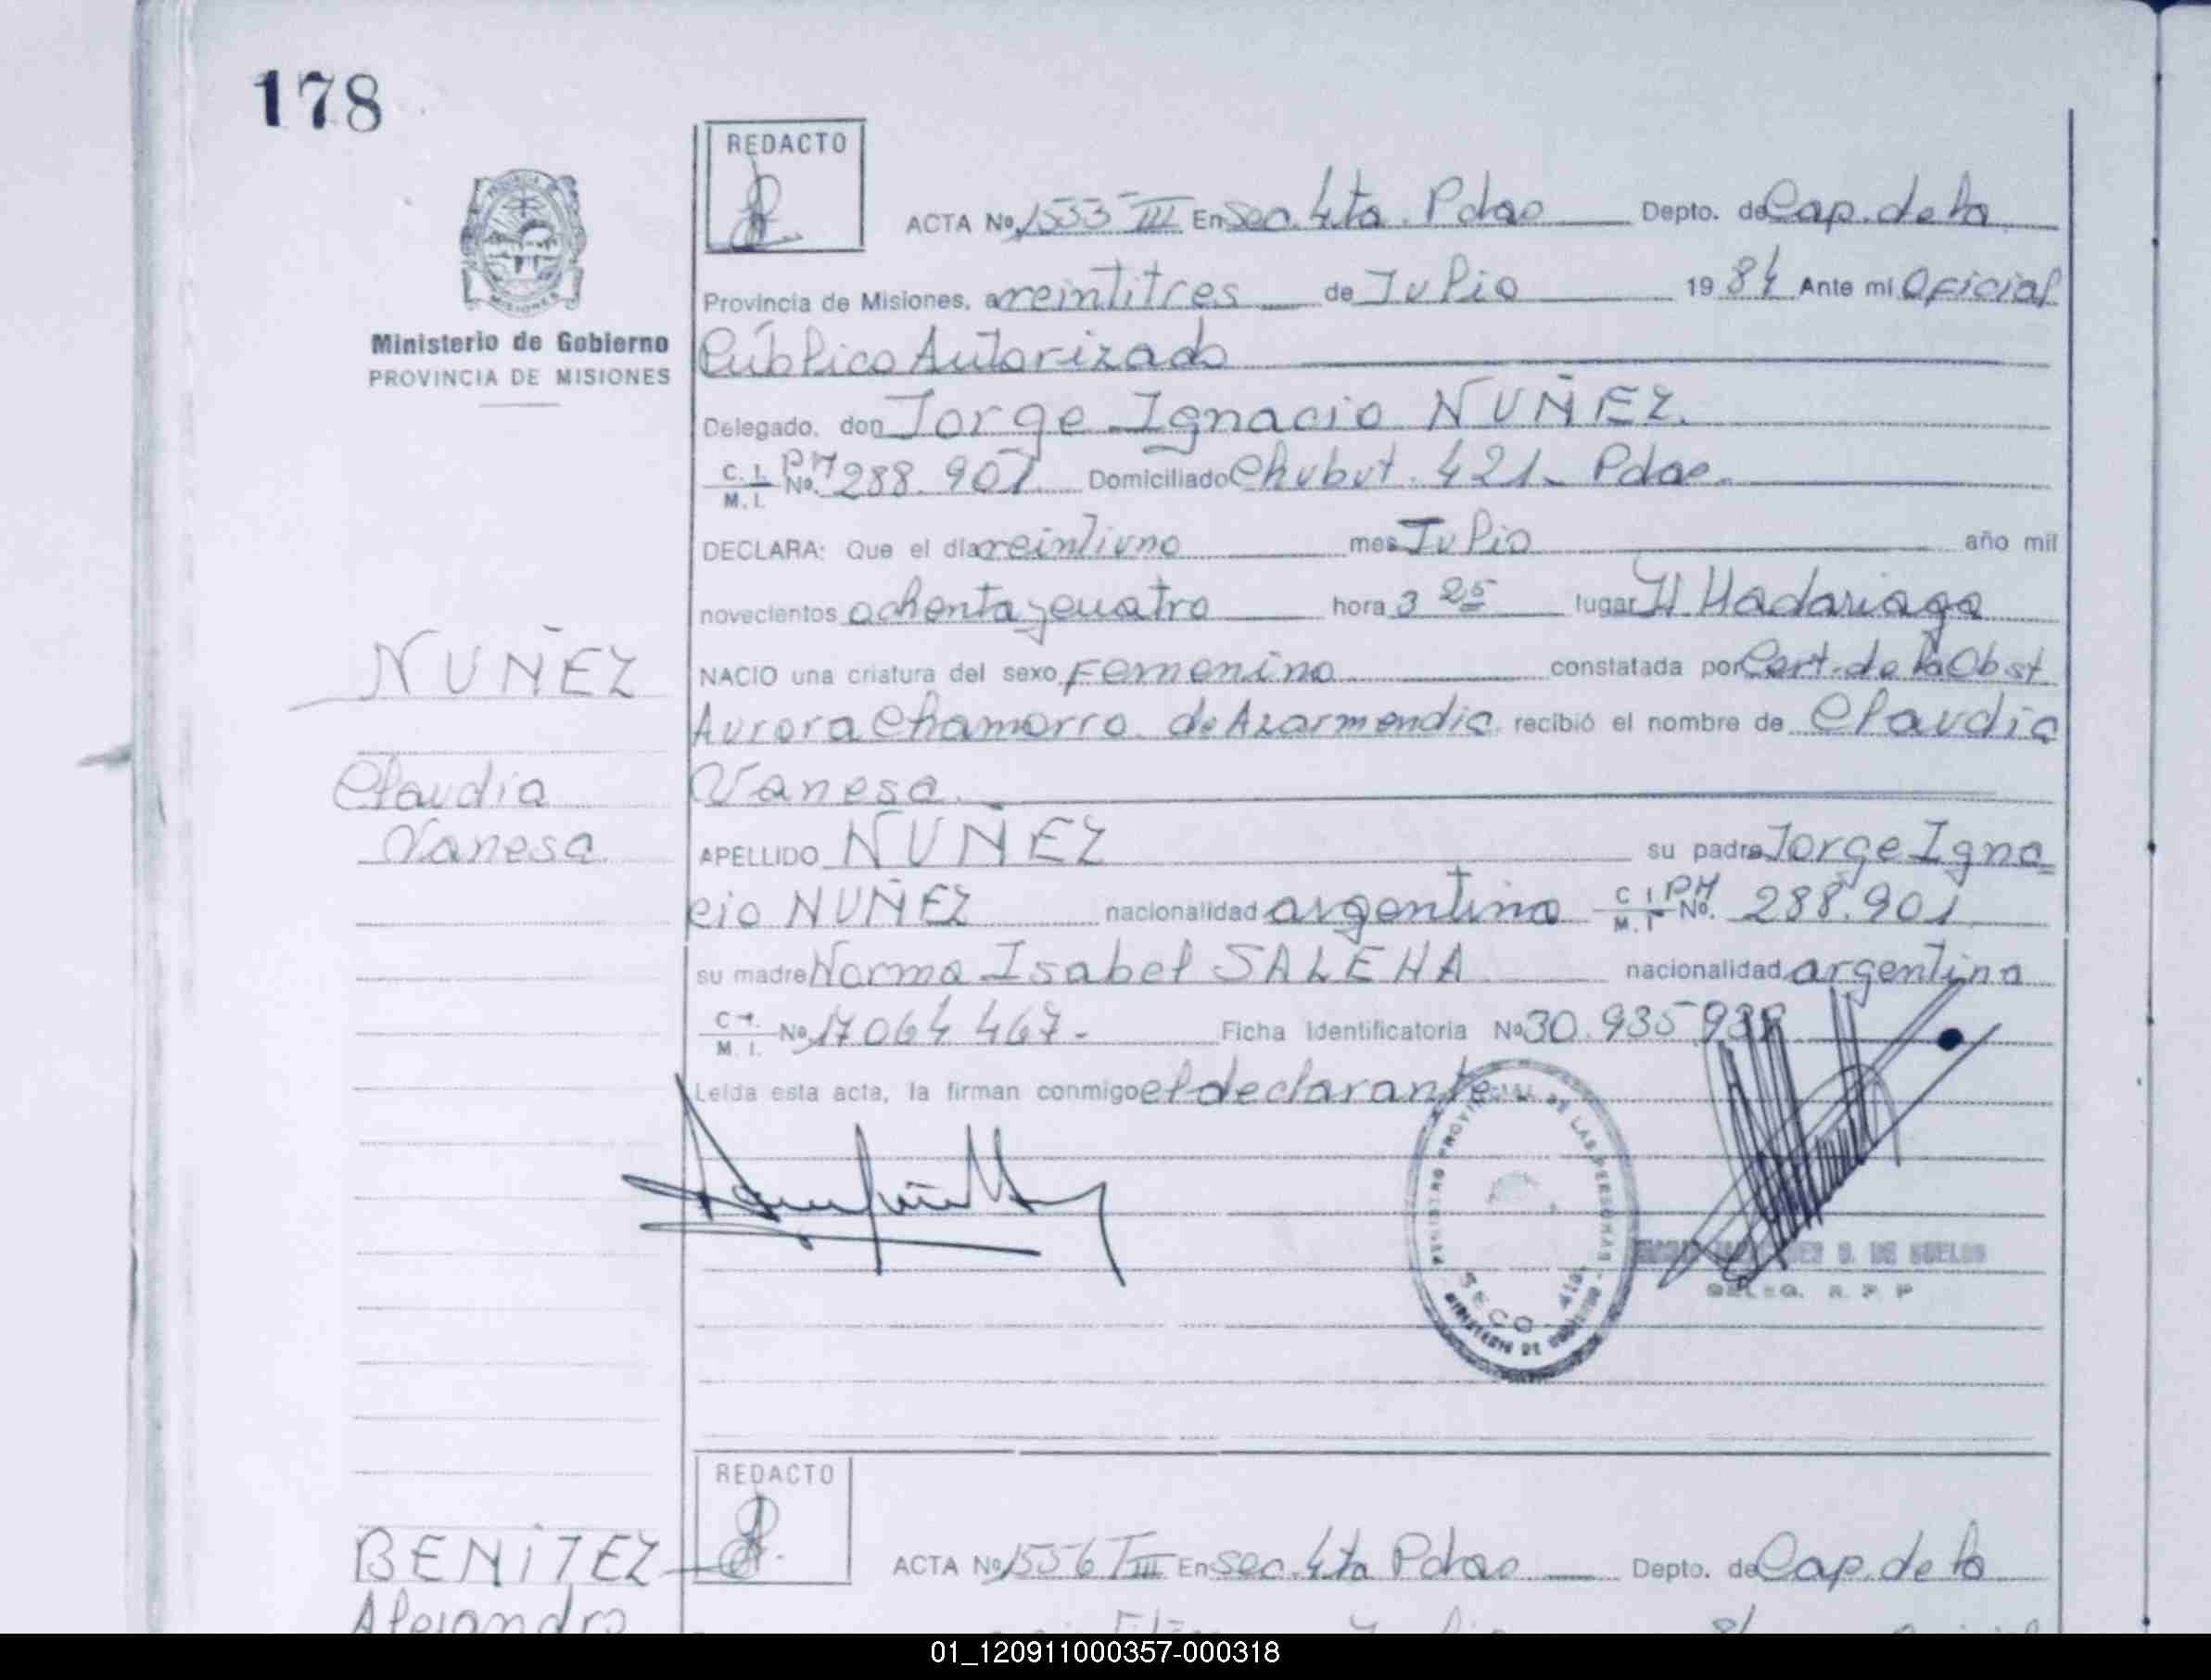 178
REDACTO
ACTA No. 1553 III En Sec. 4ta. Pdas Depto. de Cap. de la
Provincia de Misiones, a veintitres de Julio 1984 Ante mi Oficial
Ministerio de Gobierno
PROVINCIA DE MISIONES
Público Autorizado
Delegado, don Jorge Ignacio NUÑEZ.
C. I. M. I. No. 288.901 Domiciliado Chubut. 421- Pdas.
DECLARA: Que el día veintiuno mes Julio año mil
novecientos ochenta y cuatro hora 3 25 lugar H Madariaga
NACIO una criatura del sexo Femenino constatada por Cert. de la Obst
Aurora Chamorro de Azarmendia recibió el nombre de Claudia
Vanesa.
NUÑEZ
Claudia
Vanesa
APELLIDO NUÑEZ su padre Jorge Igna
cio NUÑEZ nacionalidad argentina C I M. I No. 288.901
su madre Norma Isabel nacionalidad argentina
M. I. No 17064467- Ficha Identificatoria No 30.935
Leída esta acta, la firman conmigo el declarante
REGISTRO PROVINCIAL DE LAS PERSONAS
SECC 4ta
MINISTERIO DE GOBIERNO
DELEG. R. P. P
REDACTO
BENITEZ
ACTA No 1556 T III En Sec. 4ta Pdas Depto. de Cap. de la
Alejandro
01_120911000357-000318